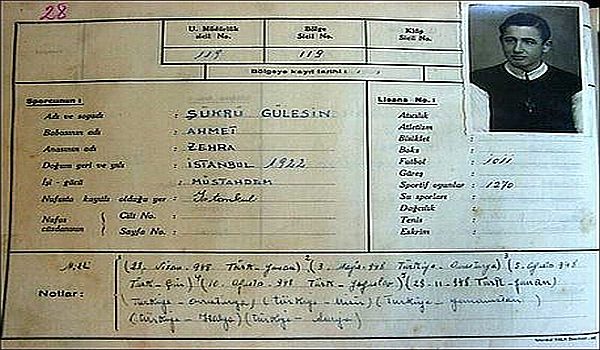 28
U. Müdürlük Sicil No. Bölge Sicil No. Klüp Sicil No.
119 119
Bölgeye kayıt tarihi : / /
Sporcunun :
Adı ve soyadı : ŞÜKRÜ GÜLESİN
Babasının adı : AHMET
Anasının adı : ZEHRA
Doğum yeri ve yılı : İSTANBUL 1922
İşi - gücü : MÜSTAHDEM
Nüfusta kayıtlı olduğu yer : İstanbul
Nüfus cüzdanının Cilt No. :
Sayfa No. :
Lisans No. :
Atıcılık :
Atletizm :
Bisiklet :
Boks :
Futbol : 1011
Güreş :
Sportif oyunlar : 1270
Su sporları :
Dağcılık :
Tenis :
Eskrim :
Notlar :
1 (23 Nisan 948 Türk - Yunan) 2 (3 Mayıs 948 Türkiye - ) 3 (5. 948
Türk - Çin) (10. 948 Türk - ) (28-11-948 Türk - Yunan)
(Türkiye - ) (Türkiye - Mısır) (Türkiye - )
(Türkiye - İtalya) (Türkiye - )